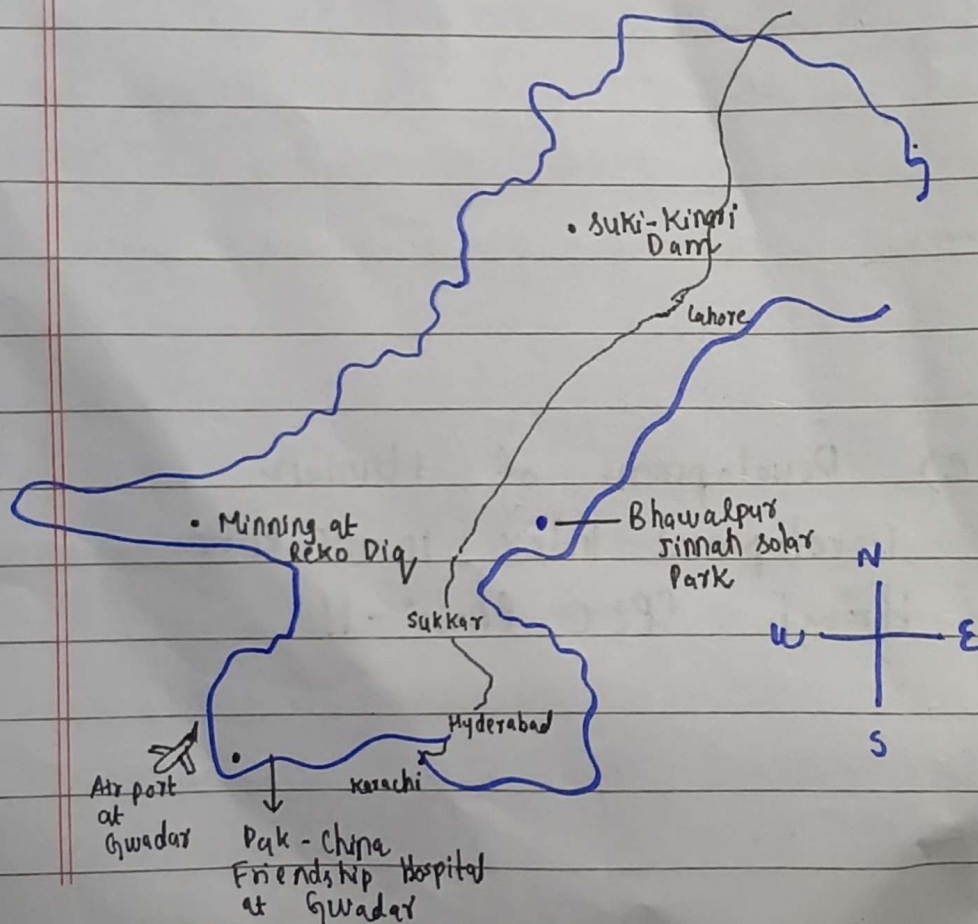 Suki-Kinari
Dam
Lahore
Minning at
Reko Diq
Bhawalpur
Jinnah Solar
Park
N
W
E
S
Sukkar
Hyderabad
Karachi
Air port
at
Gwadar
Pak-China
Friendship Hospital
at Gwadar